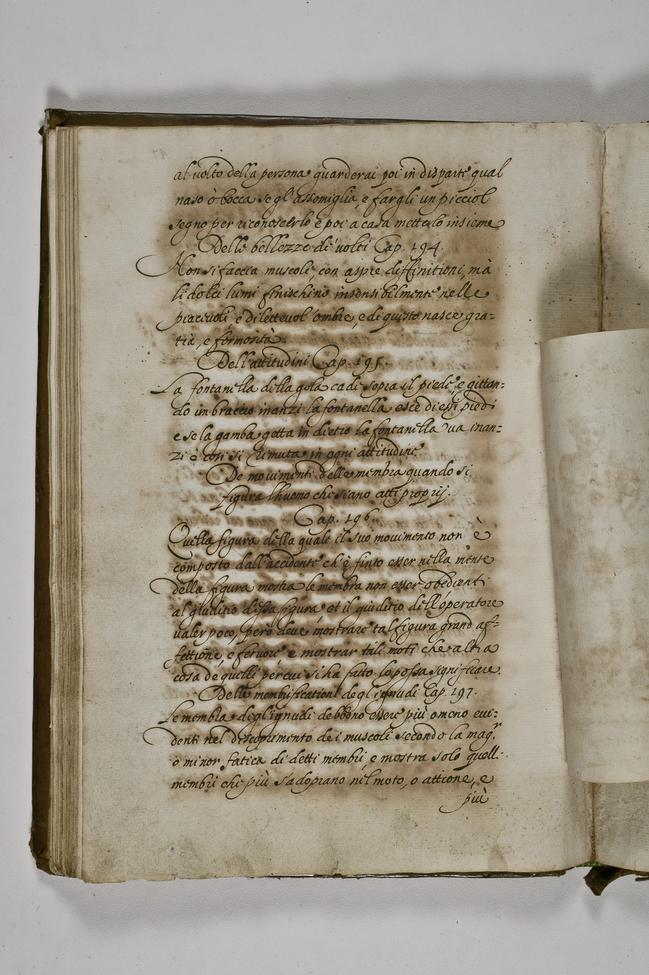 al uolto della persona guarderai poi in disparte qual
naso ò bocca se gl'assomiglia, e fargli un picciol
segno per riconoscerlo e poi a casa metterlo insieme
Delle bellezze di uolti Cap. 194.
Non si faccia muscoli, con aspre diffinitioni, mà
li dolci lumi finischino insensibilmente nelle
piaceuoli e diletteuol' ombre, e di questo nasce gra-
tia, e formosità.
Dell'attitudini Cap. 195.
La fontanella della gola cade sopra il piede, e gittan-
do un braccio inanzi la fontanella esce di essi piedi
e se la gamba getta in dietro la fontanella ua inan-
zi e così si rimuta in ogni attitudine
De mouimenti delle membra quando si
figura l'huomo che siano atti proprij.
Cap. 196.
Quella figura della quale il suo mouimento non è
composto dall'accidente ch'è finto esser nella mente
della figura mostra le membra non esser obedienti
al giuditio della figura et il giuditio dell'operatore
ualer poco, però deue mostrare tal figura grand'af-
fettione, e feruore e mostrar tali moti che altra
cosa de quelli per cui si ha fatto lo possa significare.
Delle membrificationi degl'ignudi Cap. 197.
Le membra degl'ignudi debbono essere più o meno eui-
denti nel discoprimento de i muscoli secondo la mag.r
ò minor fatica di detti membri, e mostra solo quelli
membri che più s'adoprano nel moto, o attione, e
più